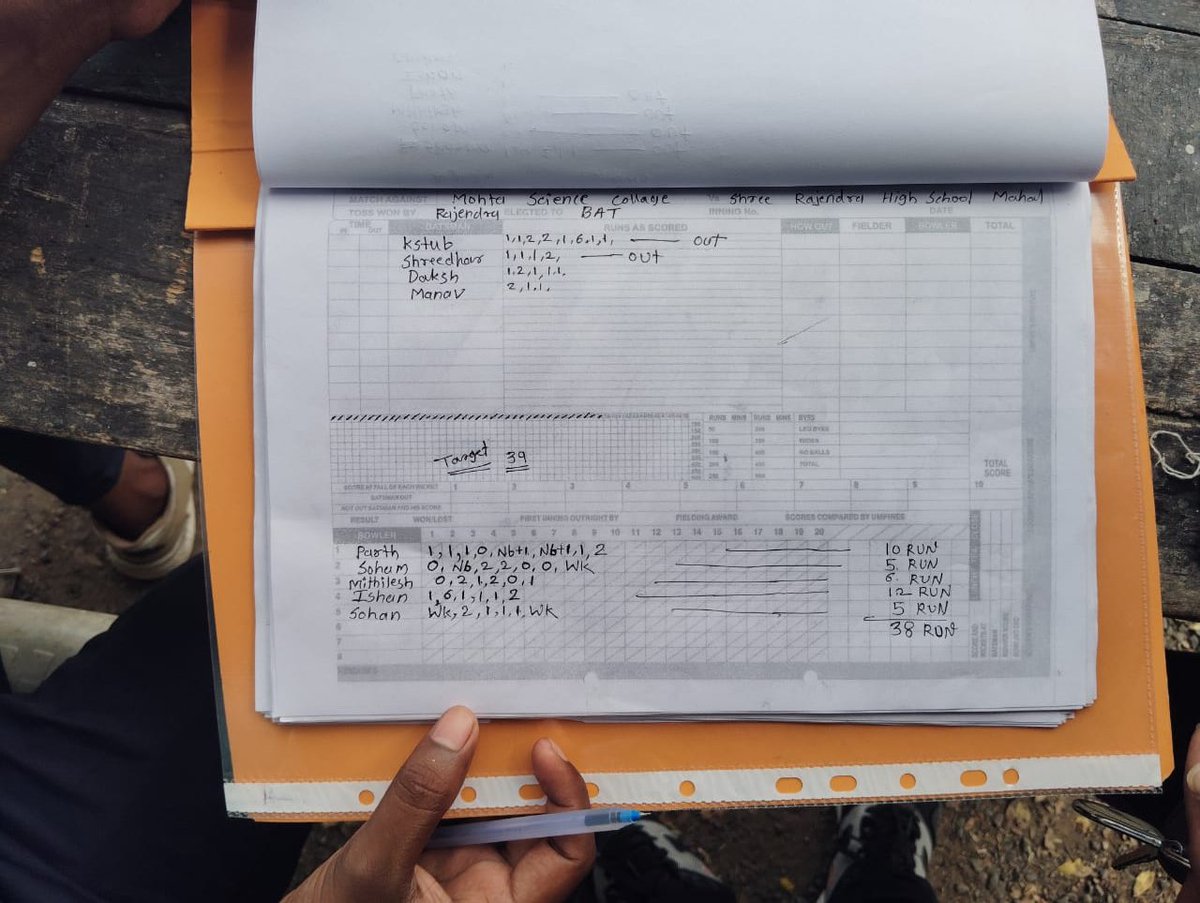 MATCH AGAINST Mohta Science Collage Vs Shree Rajendra High School Mahal
TOSS WON BY Rajendra ELECTED TO BAT INNING No. DATE
TIME IN OUT BATSMAN RUNS AS SCORED HOW OUT FIELDER BOWLER TOTAL
Kstub 1,1,2,2,1,6,1,1, —— out
Shreedhar 1,1,1,2, —— out
Daksh 1.2,1,1.1.
Manav 2,1.1.
RUNS MINS RUNS MINS BYES
50 LEG BYES
100 WIDES
150 NO BALLS
200 TOTAL
250
Target 39
TOTAL SCORE
SCORE AT FALL OF EACH WICKET 1 2 3 4 5 6 7 8 9 10
BATSMAN OUT
NOT OUT BATSMAN AND HIS SCORE
RESULT WON/LOST FIRST INNING OUTRIGHT BY FIELDING AWARD SCORES COMPARED BY UMPIRES
BOWLER 1 2 3 4 5 6 7 8 9 10 11 12 13 14 15 16 17 18 19 20
1 Parth 1,1,1,0,Nb+1,Nb+1,1,2 —— 10 RUN
2 Soham 0,Nb,2,2,0,0,Wk —— 5. RUN
3 Mithilesh 0,2,1,2,0,1 —— 6. RUN
4 Ishan 1,6,1,1,1,2 —— 12 RUN
5 Sohan Wk,2,1,1,1,Wk —— 5 RUN
6 38 RUN
7
8